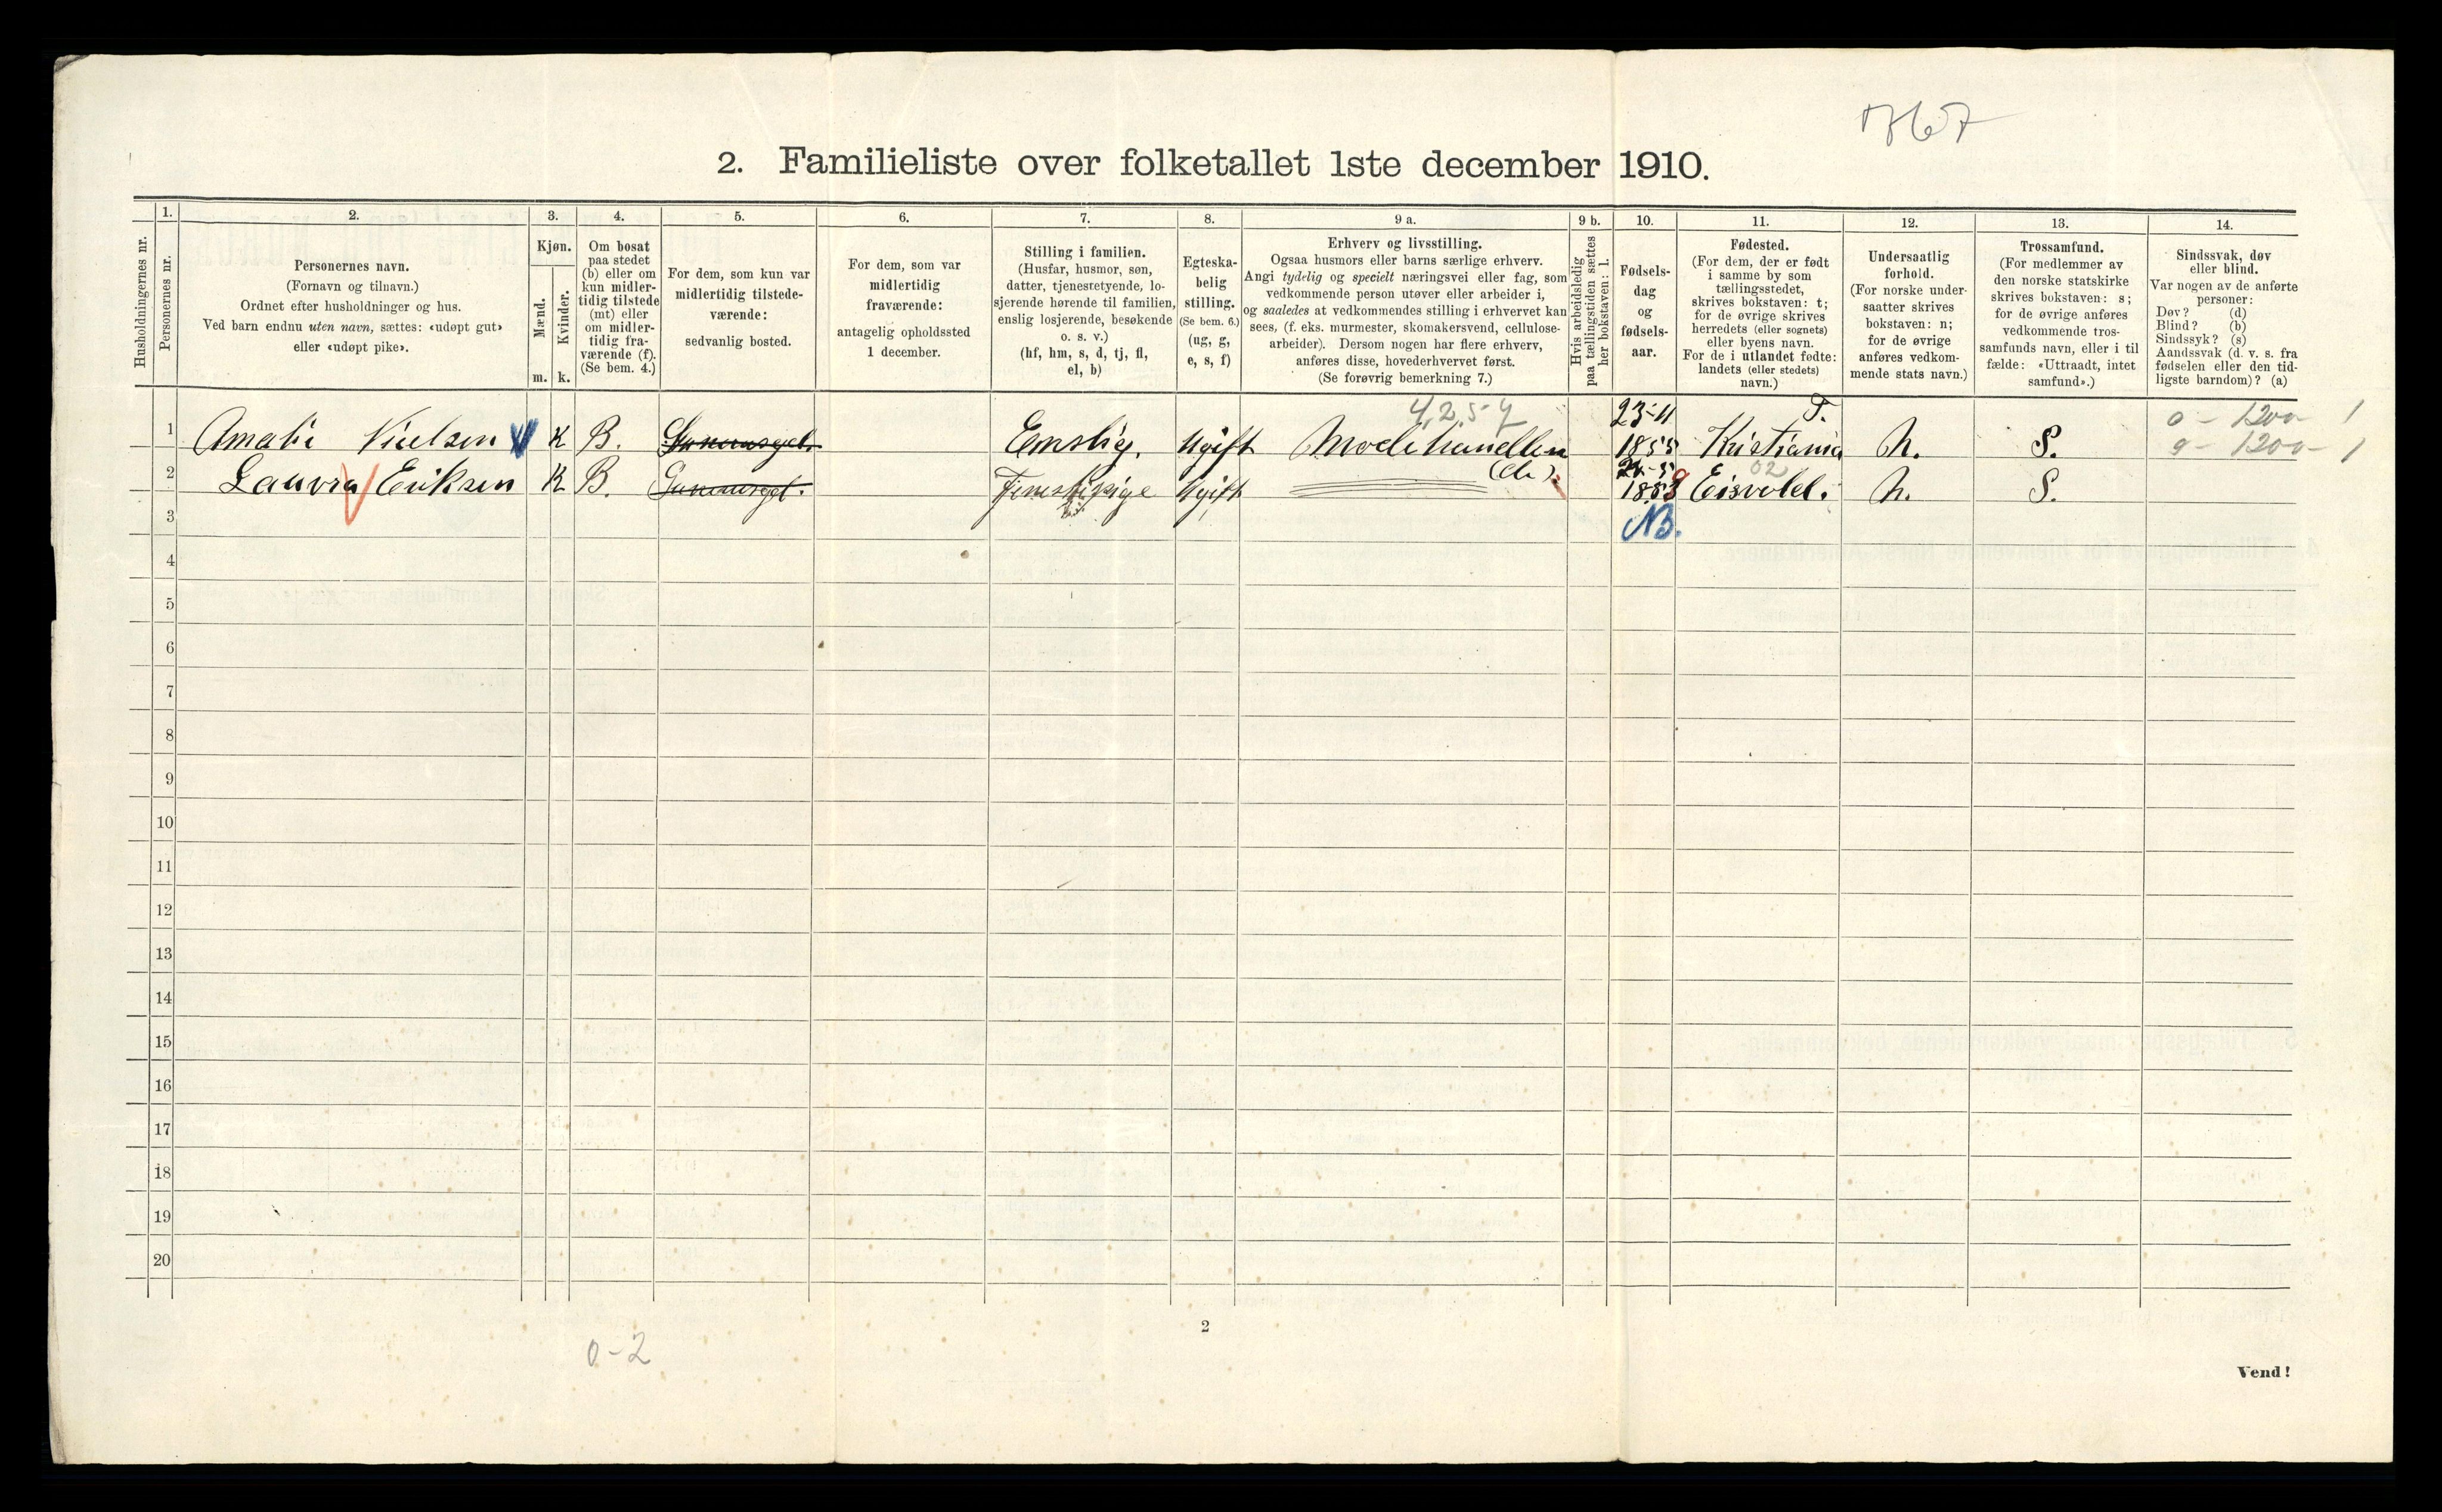 1767
2. Familieliste over folketallet 1ste december 1910.
1. 2. 3. 4. 5. 6. 7. 8. 9 a. 9 b. 10. 11. 12. 13. 14.
Husholdningernes nr.
Personernes nr.
Personernes navn.
(Fornavn og tilnavn.)
Ordnet efter husholdninger og hus.
Ved barn endnu uten navn, sættes: «udøpt gut»
eller «udøpt pike».
Kjøn.
Mænd.
m.
Kvinder.
k.
Om bosat
paa stedet
(b) eller om
kun midler-
tidig tilstede
(mt) eller
om midler-
tidig fra-
værende (f).
(Se bem. 4.)
For dem, som kun var
midlertidig tilstede-
værende:
sedvanlig bosted.
For dem, som var
midlertidig
fraværende:
antagelig opholdssted
1 december.
Stilling i familien.
(Husfar, husmor, søn,
datter, tjenestetyende, lo-
sjerende hørende til familien,
enslig losjerende, besøkende
o. s. v.)
(hf, hm, s, d, tj, fl,
el, b)
Egteska-
belig
stilling.
(Se bem. 6.)
(ug, g,
e, s, f)
Erhverv og livsstilling.
Ogsaa husmors eller barns særlige erhverv.
Angi tydelig og specielt næringsvei eller fag, som
vedkommende person utøver eller arbeider i,
og saaledes at vedkommendes stilling i erhvervet kan
sees, (f. eks. murmester, skomakersvend, cellulose-
arbeider). Dersom nogen har flere erhverv,
anføres disse, hovederhvervet først.
(Se forøvrig bemerkning 7.)
Hvis arbeidsledig
paa tællingstiden sættes
her bokstaven: l.
Fødsels-
dag
og
fødsels-
aar.
Fødested.
(For dem, der er født
i samme by som
tællingsstedet,
skrives bokstaven: t;
for de øvrige skrives
herredets (eller sognets)
eller byens navn.
For de i utlandet fødte:
landets (eller stedets)
navn.)
Undersaatlig
forhold.
(For norske under-
saatter skrives
bokstaven: n;
for de øvrige
anføres vedkom-
mende stats navn.)
Trossamfund.
(For medlemmer av
den norske statskirke
skrives bokstaven: s;
for de øvrige anføres
vedkommende tros-
samfunds navn, eller i til
fælde: «Uttraadt, intet
samfund».)
Sindssvak, døv
eller blind.
Var nogen av de anførte
personer:
Døv? (d)
Blind? (b)
Sindssyk? (s)
Aandssvak (d. v. s. fra
fødselen eller den tid-
ligste barndom)? (a)
4,2,5-7 23-11 T. 0 - 1200 1
1 Amalie Nielsen K B. Enslig. Ugift Modehandlen 1855 Kristiania N. S. 0 - 1200 - 1
(de). 02
2 Lauvra Eriksen K B. Tjenestpige Ugift 1853 Eisvold. N. S.
3 NB.
4
5
6
7
8
9
10
11
12
13
14
15
16
17
18
19
20
2
0-2
Vend!